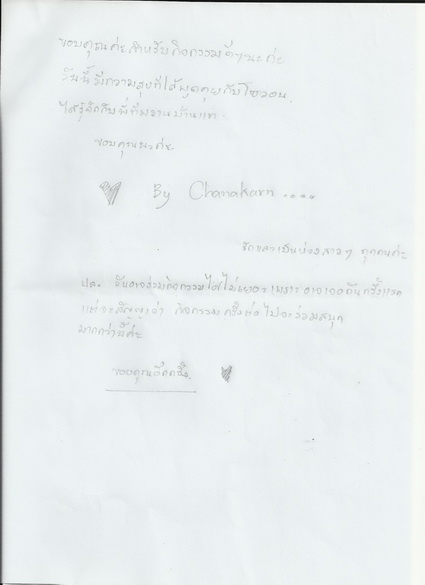 ขอบคุณค่ะ สำหรับกิจกรรมดีๆนะค่ะ
วันนี้มีความสุขที่ได้พูดคุยกับ
ได้รู้จักกับพี่ทีมงาน
ขอบคุณนะค่ะ
By Chanakarn ....
รักและเป็นห่วง ทุกคนค่ะ
ปล. ร่วมกิจกรรมได้ไม่เยอะ เพราะ เจอกันครั้งแรก
แต่จะสัญญาว่า กิจกรรมครั้งต่อไปจะร่วมสนุก
มากกว่านี้ค่ะ
ขอบคุณอีกครั้ง